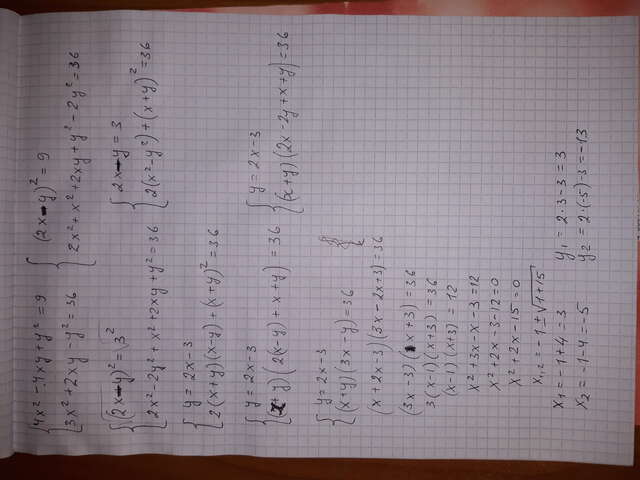 {4x² - 4xy + y² = 9
{3x² + 2xy - y² = 36
{(2x-y)² = 9
{2x² + x² + 2xy + y² - 2y² = 36
{√(2x-y)² = √3²
{2x² - 2y² + x² + 2xy + y² = 36
{2x-y = 3
{2(x² - y²) + (x+y)² = 36
{y = 2x-3
{2(x+y)(x-y) + (x+y)² = 36
{y = 2x-3
{(x+y)(2(x-y) + x+y) = 36
{y = 2x-3
{(x+y)(2x-2y+x+y) = 36
{y = 2x-3
{(x+y)(3x-y) = 36
(x+2x-3)(3x-2x+3) = 36
(3x-3)(x+3) = 36
3(x-1)(x+3) = 36
(x-1)(x+3) = 12
x² + 3x - x - 3 = 12
x² + 2x - 3 - 12 = 0
x² + 2x - 15 = 0
x₁,₂ = -1 ± √1+15
x₁ = -1+4 = 3 y₁ = 2·3-3 = 3
x₂ = -1-4 = -5 y₂ = 2·(-5)-3 = -13